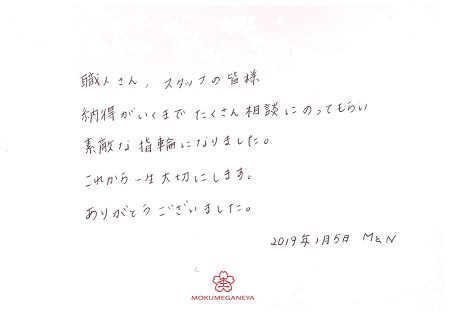 職人さん, スタッフの皆様
納得がいくまで たくさん相談にのってもらい
素敵な指輪になりました。
これから一生大切にします。
ありがとうございました。
2019年1月5日 M&N
MOKUMEGANEYA